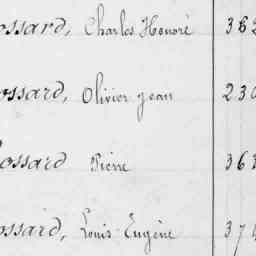 ossard, Charles Honoré 382
ossard, Olivier Jean 230
ossard Pierre 363
ossard, Louis Eugène 374